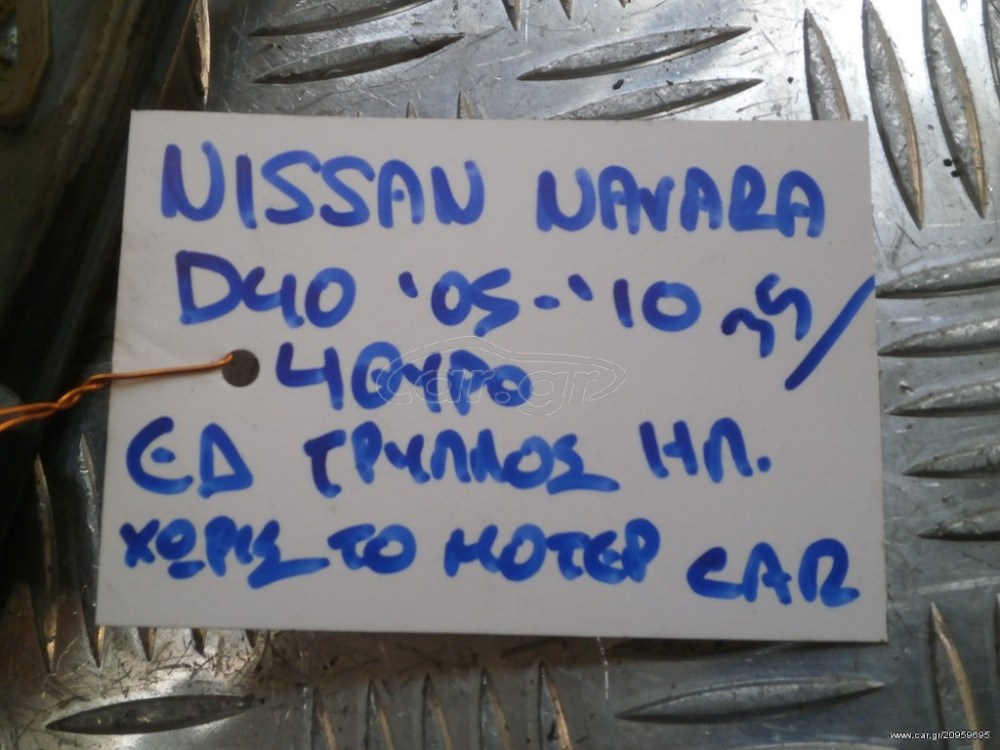 NISSAN NAVARA
D40 '05-'10
4ΘΥΡΟ
ΕΔ ΤΡΥΠΛΟΣ ΗΛ.
ΧΩΡΙΣ ΤΟ ΜΟΤΕΡ CAR
car.gr
www.car.gr/20959695